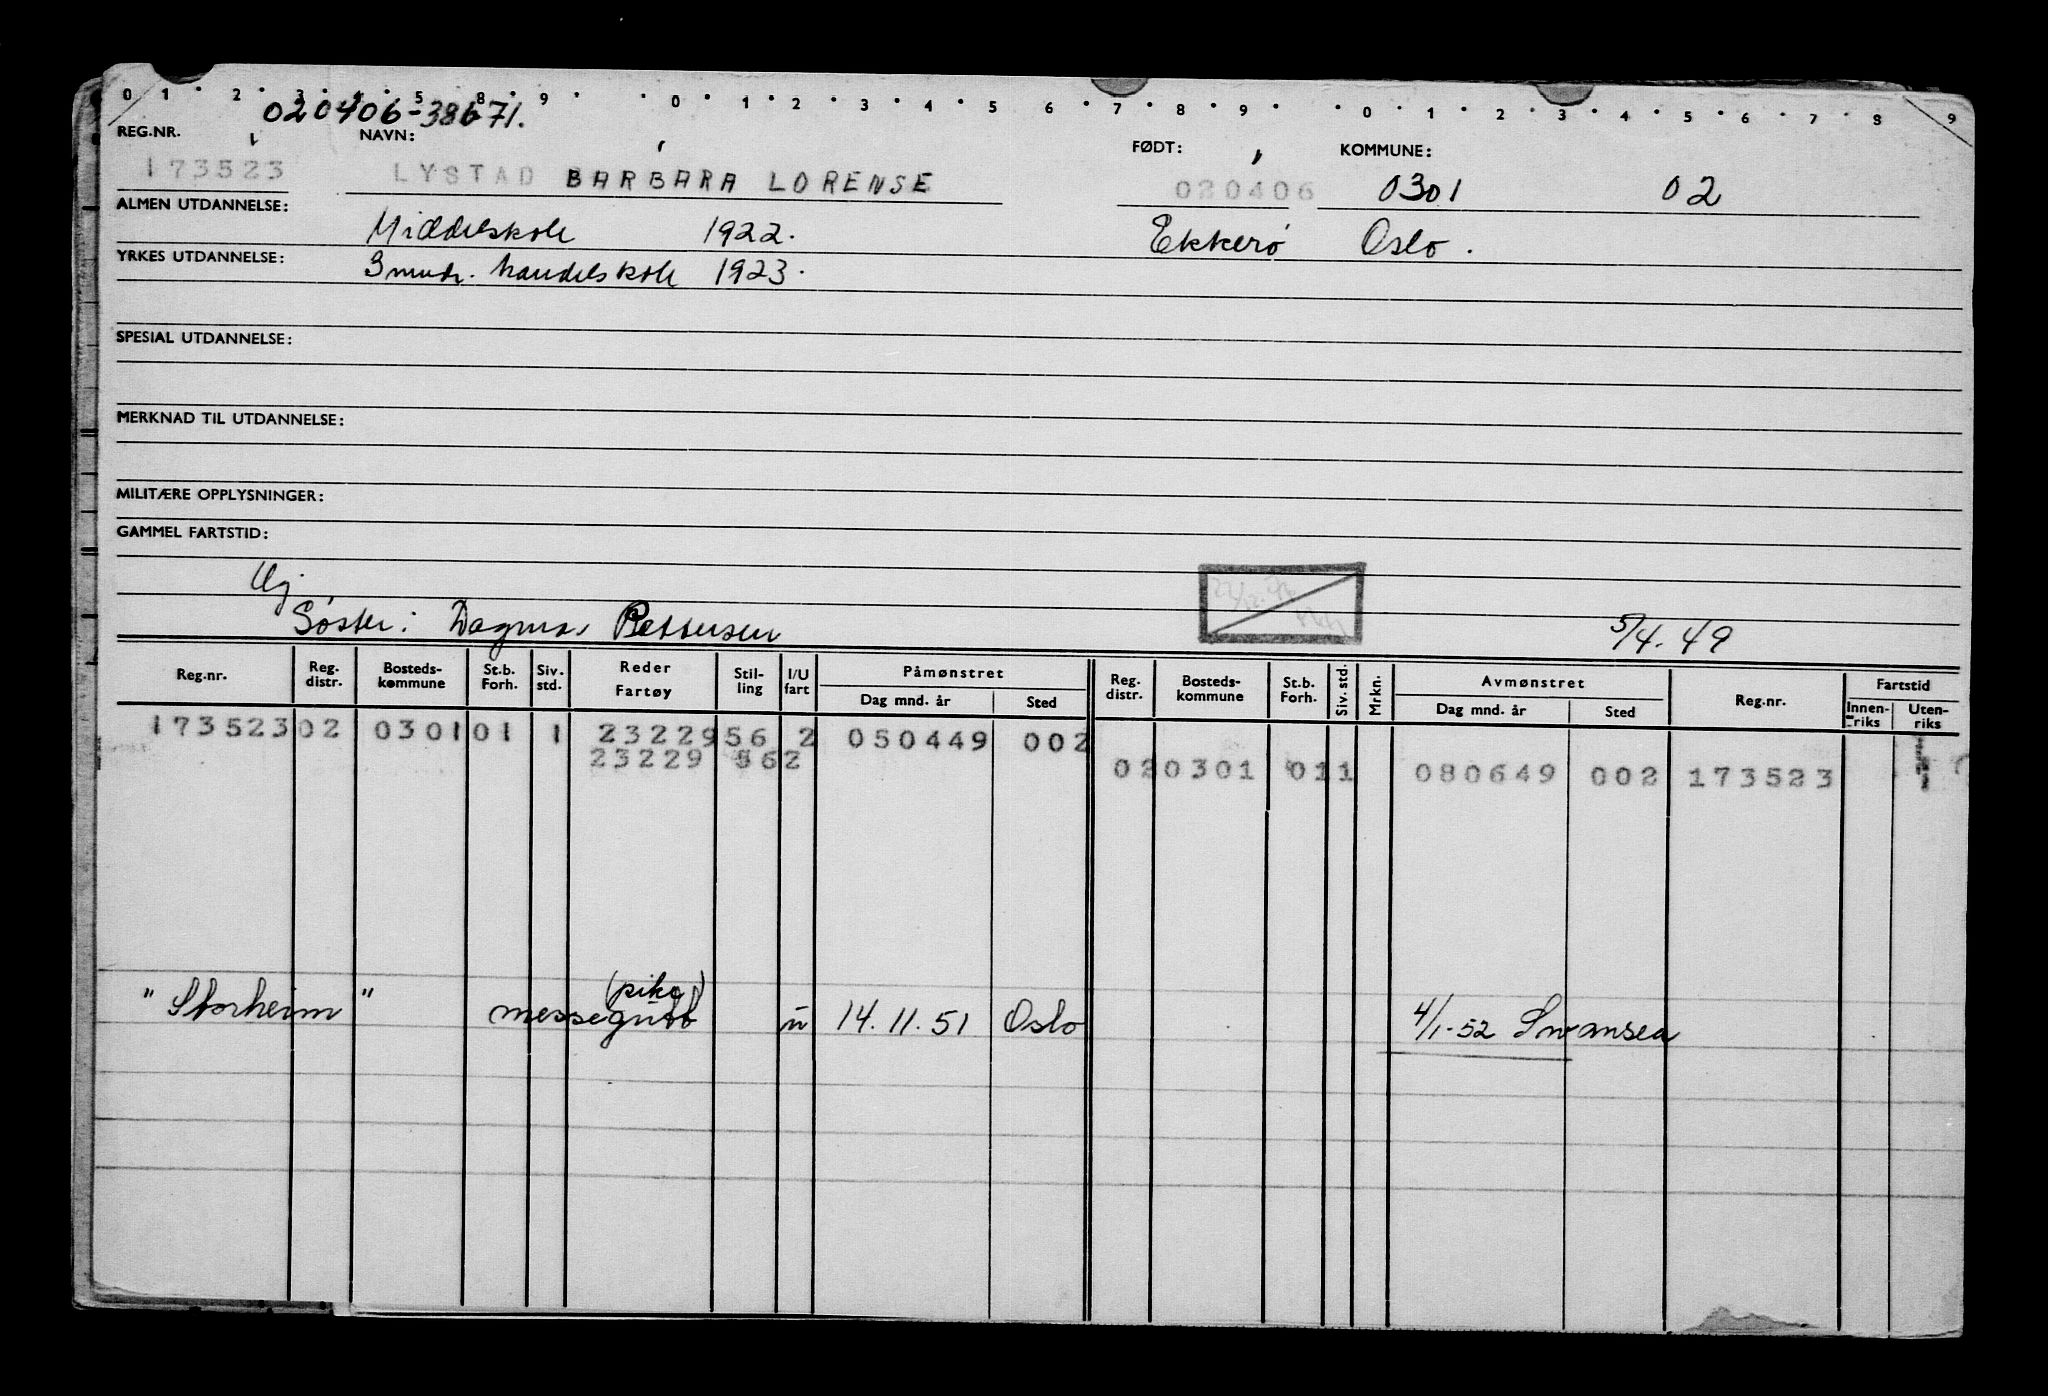 0 1 2 3 4 5 8 9 0 1 2 3 4 5 6 7 8 9 0 1 2 3 4 5 6 7 8 9
020406-38671.
REG.NR. NAVN: FØDT: KOMMUNE:
173523 LYSTAD BARBARA LORENSE 020406 0301 02
ALMEN UTDANNELSE: Middelskole 1922. Ekkerø Oslo.
YRKES UTDANNELSE: 3 mndr. handelskole 1923.
SPESIAL UTDANNELSE:
MERKNAD TIL UTDANNELSE:
MILITÆRE OPPLYSNINGER:
GAMMEL FARTSTID:
Ug
Søster: Dagmar Pettersen 5/4.49
Reg.nr. Reg. distr. Bosteds-kommune St.b. Forh. Siv. std. Reder Fartøy Stil-ling I/U fart Påmønstret Dag mnd. år Sted Reg. distr. Bosteds-kommune St.b. Forh. Siv. std. Mrkn. Avmønstret Dag mnd. år Sted Reg.nr. Fartstid Innen-riks Uten-riks
173523 02 0301 01 1 23229 56 2 050449 002
23229 56 2 02 0301 01 1 080649 002 173523
(pike)
"Storheim" messegutt u 14.11.51 Oslo 4/1-52 Swansea